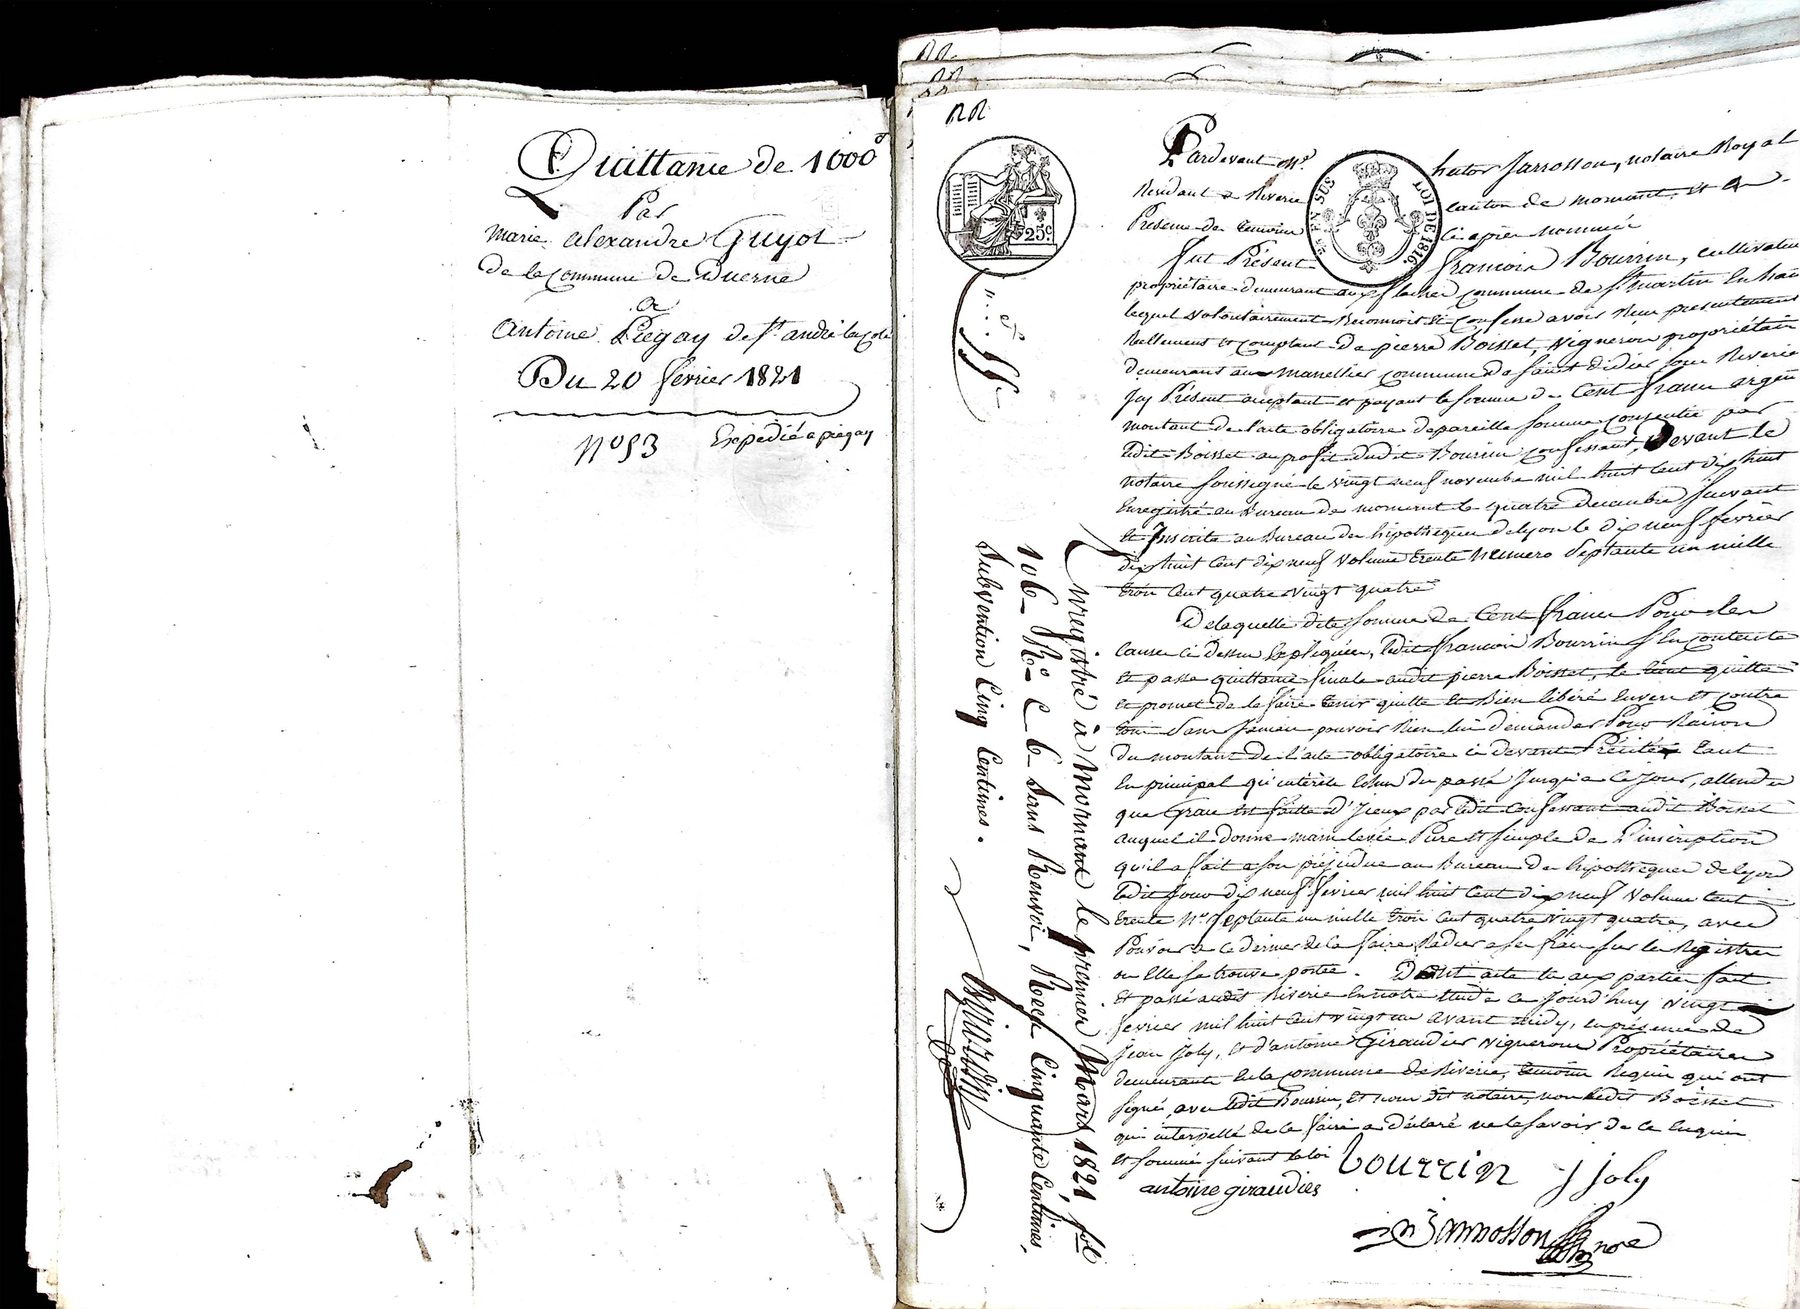 Quittance de 1000
Par
Marie Alexandre Guyot
de la Commune de Duerne
a
Antoine Piegay de St andré la Cote
Du 20 février 1821
N° 53 Expedié a piegay
25 c
EN SUS
LOI DE 1816.
Pardevant Me hector Jarrosson, notaire Royal
Residant a Riverie canton de mornant, et en
Presence des temoins ci apres nommés
fut Présent francois Bourrin, cultivateur
propriétaire demeurant aux flaches commune de St martin En haut
lequel volontairement Reconnoit Et Confesse avoir Reçu presentement
Reellement et comptant de pierre Boisset, vigneron propriétaire
demeurant au Manellier commune de saint didier sous Riverie
Icy Présent acceptant et payant la somme de Cent francs argent
montant de l'acte obligatoire de pareille somme consentie par
ledit Boisset au profit dudit Bourrin confessant, Devant le
notaire soussigné le vingt neuf novembre mil huit cent dix huit
Enregistré au Bureau de mornant le quatre decembre suivant
et Inscrite au Bureau des hipotheques de lyon le dix neuf fevrier
dix huit cent dix neuf volume trente Numero septante un mille
trois cent quatre vingt quatre
De laquelle dite somme de Cent francs Pour les
causes ci dessus Expliquées, ledit francois Bourrin s'En contente
Et passe quittance finale audit pierre Boisset, le tient quitte
et promet de le faire tenir quitte et Bien libéré Envers et contre
tous sans Jamais pouvoir Rien lui demander Pour Raison
du montant de l'acte obligatoire ci devant Précité, tant
En principal qu'intérets Echus du passé Jusqu'a ce jour, attendu
que Grace Est faitte d'Iceux par ledit Confessant audit Boisset
auquel il donne main levée Pure Et simple de l'inscription
qu'il a fait a son préjudice au Bureau des hipotheques de lyon
ledit Jour dix neuf fevrier mil huit cent dix neuf volume cent
trente N° septante un mille trois cent quatre vingt quatre, avec
Pouvoir a ce dernier de la faire Radier a ses frais sur les Registres
ou Elle se trouve portée. Dont acte lu aux parties fait
Et passé audit Riverie En notre Etude ce jourd'huy vingt
fevrier mil huit cent vingt un avant midy, en présence de
Jean Joly, et d'antoine Giraudier vignerons Propriétaires
demeurants En la commune de Riverie, temoins Requis qui ont
signé avec ledit Bourrin, Et nous dit notaire, non ledit Boisset
qui interpellé de le faire a déclaré ne le savoir de ce Enquis
et sommé suivant la loi
bourrin J joly
antoine giraudier
Jarrosson nre
Enregistré à Mornant le premier Mars 1821, fol
106 Ro C 6 sans Renvoi, Reçu Cinquante Centimes,
Subvention Cinq Centimes.